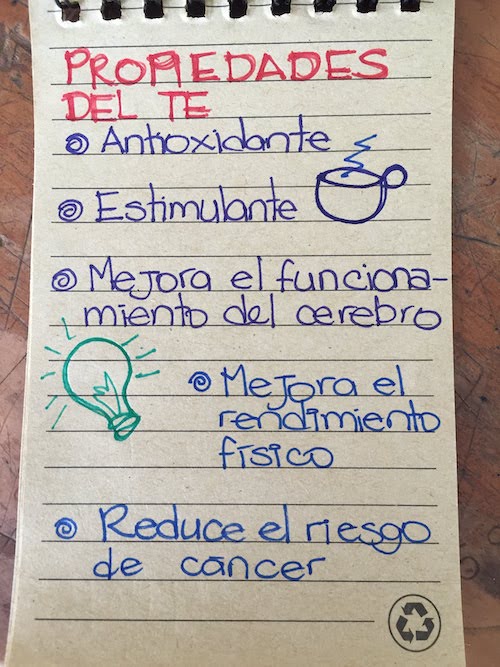 PROPIEDADES
DEL TE
Antioxidante
Estimulante
Mejora el funciona-
miento del cerebro
Mejora el
rendimiento
físico
Reduce el riesgo
de cáncer